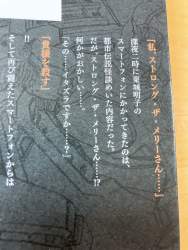 「私、ストロング・ザ・メリーさん……」
深夜二時に東城明子の
スマートフォンにかかってきたのは、
都市伝説怪談めいた内容だった。
だが、ストロング・ザ・メリーさん……!?
何かがおかしい……。
その……イタズラですか……?
「貴様を殺す」
!!
そして再び震えたスマートフォンからは